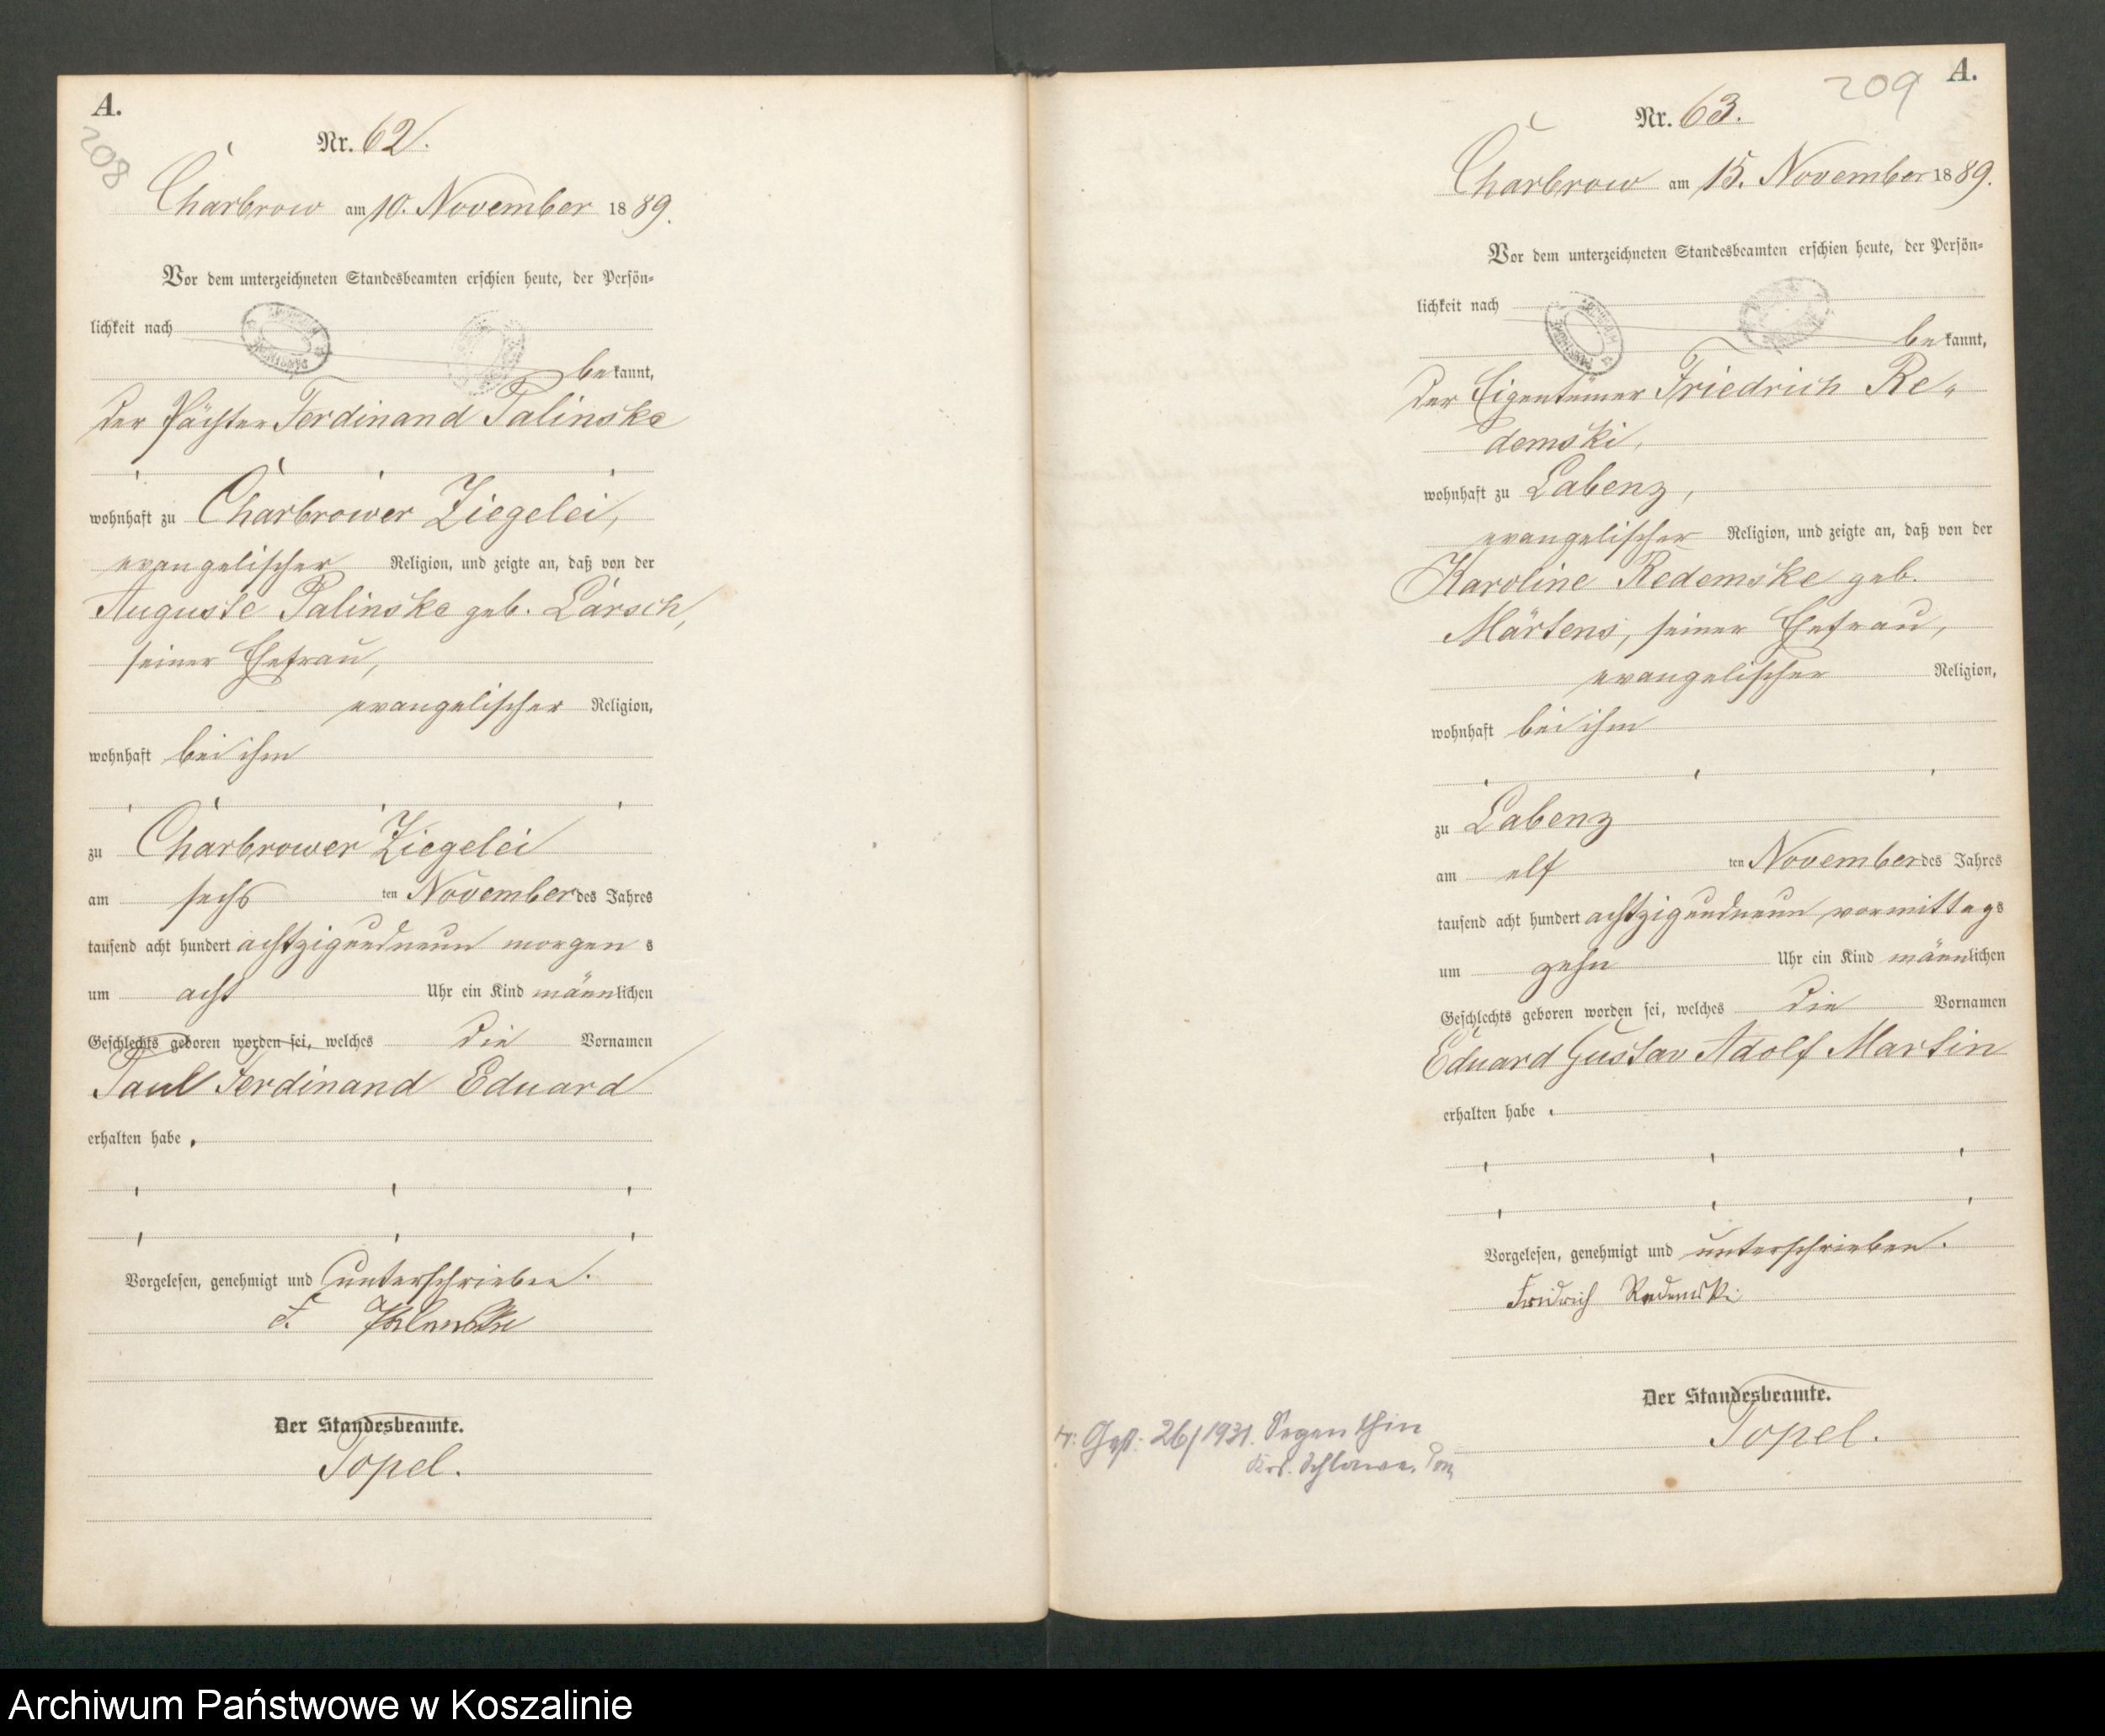 A.
208
Nr. 62.
Charbrow am 10. November 1889.
Vor dem unterzeichneten Standesbeamten erschien heute, der Persön-
lichkeit nach
bekannt,
der Pächter Ferdinand Palinske
wohnhaft zu Charbrower Ziegelei,
evangelischer Religion, und zeigte an, daß von der
Auguste Palinske geb. Larsch,
seiner Ehefrau,
evangelischer Religion,
wohnhaft bei ihm
zu Charbrower Ziegelei
am sechs ten November des Jahres
tausend acht hundert achtzigundneun morgens
um acht Uhr ein Kind männlichen
Geschlechts geboren worden sei, welches die Vornamen
Paul Ferdinand Eduard
erhalten habe.
Vorgelesen, genehmigt und unterschrieben.
F. Palinske
Der Standesbeamte.
Topel.
209
A.
Nr. 63.
Charbrow am 15. November 1889.
Vor dem unterzeichneten Standesbeamten erschien heute, der Persön-
lichkeit nach
bekannt,
der Eigentümer Friedrich Re-
demski,
wohnhaft zu Labenz,
evangelischer Religion, und zeigte an, daß von der
Karoline Redemske geb.
Märtens, seiner Ehefrau,
evangelischer Religion,
wohnhaft bei ihm
zu Labenz
am elf ten November des Jahres
tausend acht hundert achtzigundneun vormittags
um zehn Uhr ein Kind männlichen
Geschlechts geboren worden sei, welches die Vornamen
Eduard Gustav Adolf Martin
erhalten habe.
Vorgelesen, genehmigt und unterschrieben.
Fridrich Redemski
Der Standesbeamte.
Topel.
26/1931. Segenthin
Krs. Schlawe, Pom
Archiwum Państwowe w Koszalinie